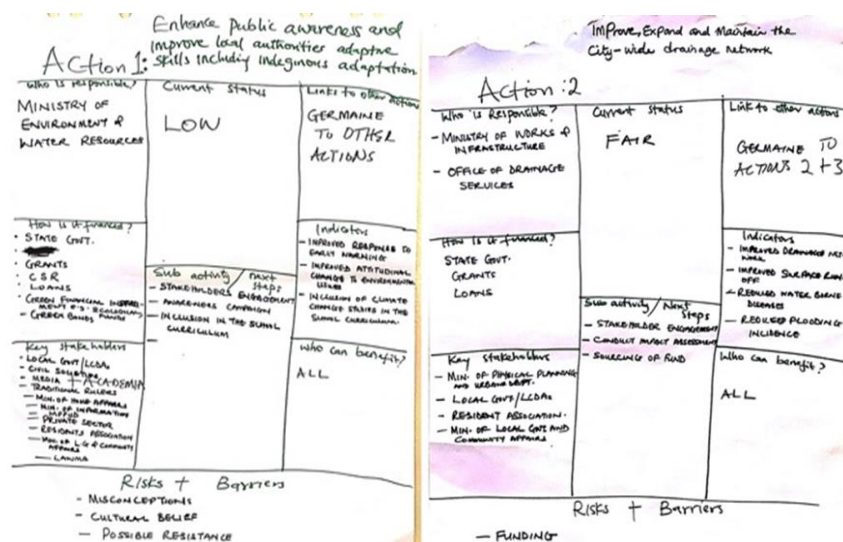 Enhance Public awareness and
improve local authorities adaptive
Action 1: skills including indeginous adaptation
Who is responsible?
MINISTRY OF
ENVIRONMENT &
WATER RESOURCES
Current Status
LOW
Links to other action
GERMAINE
TO OTHER
ACTIONS
How is it financed?
• STATE GOVT.
• GRANTS
• CSR
• LOANS
• GREEN FINANCIAL
- GREEN BONDS FUNDS
Sub activity/next
steps
- STAKEHOLDERS ENGAGEMENT
- AWARENESS CAMPAIGN
- INCLUSION IN THE SCHOOL
CURRICULUM
Indicators
- IMPROVED RESPONSE TO
EARLY WARNING
- IMPROVED ATTITUDINAL
CHANGE TO ENVIRONMENTAL
ISSUES
- INCLUSION OF CLIMATE
CHANGE IN THE
SCHOOL CURRICULUM.
Key stakeholders
- LOCAL GOVT/LCDAs
- CIVIL
- MEDIA + ACADEMIA
- TRADITIONAL RULERS
- MIN. OF HOME AFFAIRS
- MIN. OF INFORMATION
- PRIVATE SECTOR
- RESIDENTS ASSOCIATION
- MIN. OF L.G & COMMUNITY
AFFAIRS
- LAWMA
Who can benefit?
ALL
Risks + Barriers
- MISCONCEPTIONS
- CULTURAL BELIEF
- POSSIBLE RESISTANCE
Improve, Expand and Maintain the
City-wide drainage network
Action: 2
Who is Responsible?
- MINISTRY OF WORKS &
INFRASTRUCTURE
- OFFICE OF DRAINAGE
SERVICES
Current Status
FAIR
Link to other actions
GERMAINE TO
ACTIONS 2+3
How is it financed?
STATE GOVT.
GRANTS
LOANS
Sub activity/Next
steps
- STAKEHOLDER ENGAGEMENT
- CONDUCT IMPACT ASSESSMENT
- SOURCING OF FUND
Indicators
- IMPROVED DRAINAGE NET
WORK
- IMPROVED SURFACE RUN
OFF
- REDUCED WATER BORNE
DISEASES
- REDUCED FLOODING
INCIDENCE
Key stakeholders
- MIN. OF PHYSICAL PLANNING
AND URBAN DEPT.
- LOCAL GOVT/LCDAs
- RESIDENT ASSOCIATION.
- MIN. OF LOCAL GOVT AND
COMMUNITY AFFAIRS
Who can benefit?
ALL
Risks + Barriers
- FUNDING